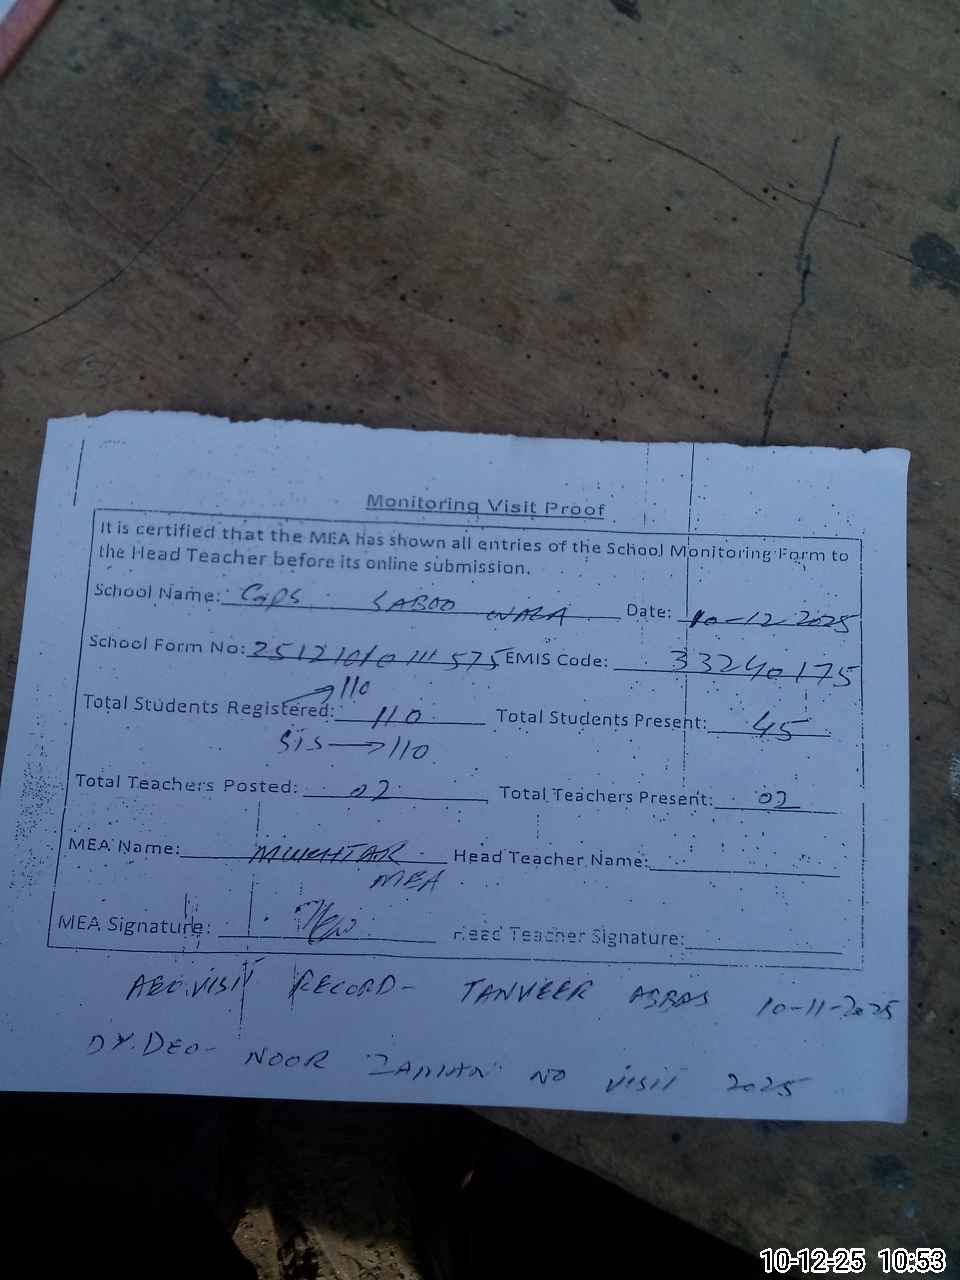 Monitoring Visit Proof
It is certified that the MEA has shown all entries of the School Monitoring Form to
the Head Teacher before its online submission.
School Name: GGPS SABOO WALA Date: 10-12-2025
School Form No: 25121010111575 EMIS Code: 33240175
110
Total Students Registered: 110 Total Students Present: 45
SIS → 110
Total Teachers Posted: 02 Total Teachers Present: 02
MEA Name: MUKHTAR Head Teacher Name:
MEA
MEA Signature: Head Teacher Signature:
AEO VISIT RECORD- TANVEER ABBAS 10-11-2025
DY.DEO- NOOR NO VISIT 2025
10-12-25 10:53